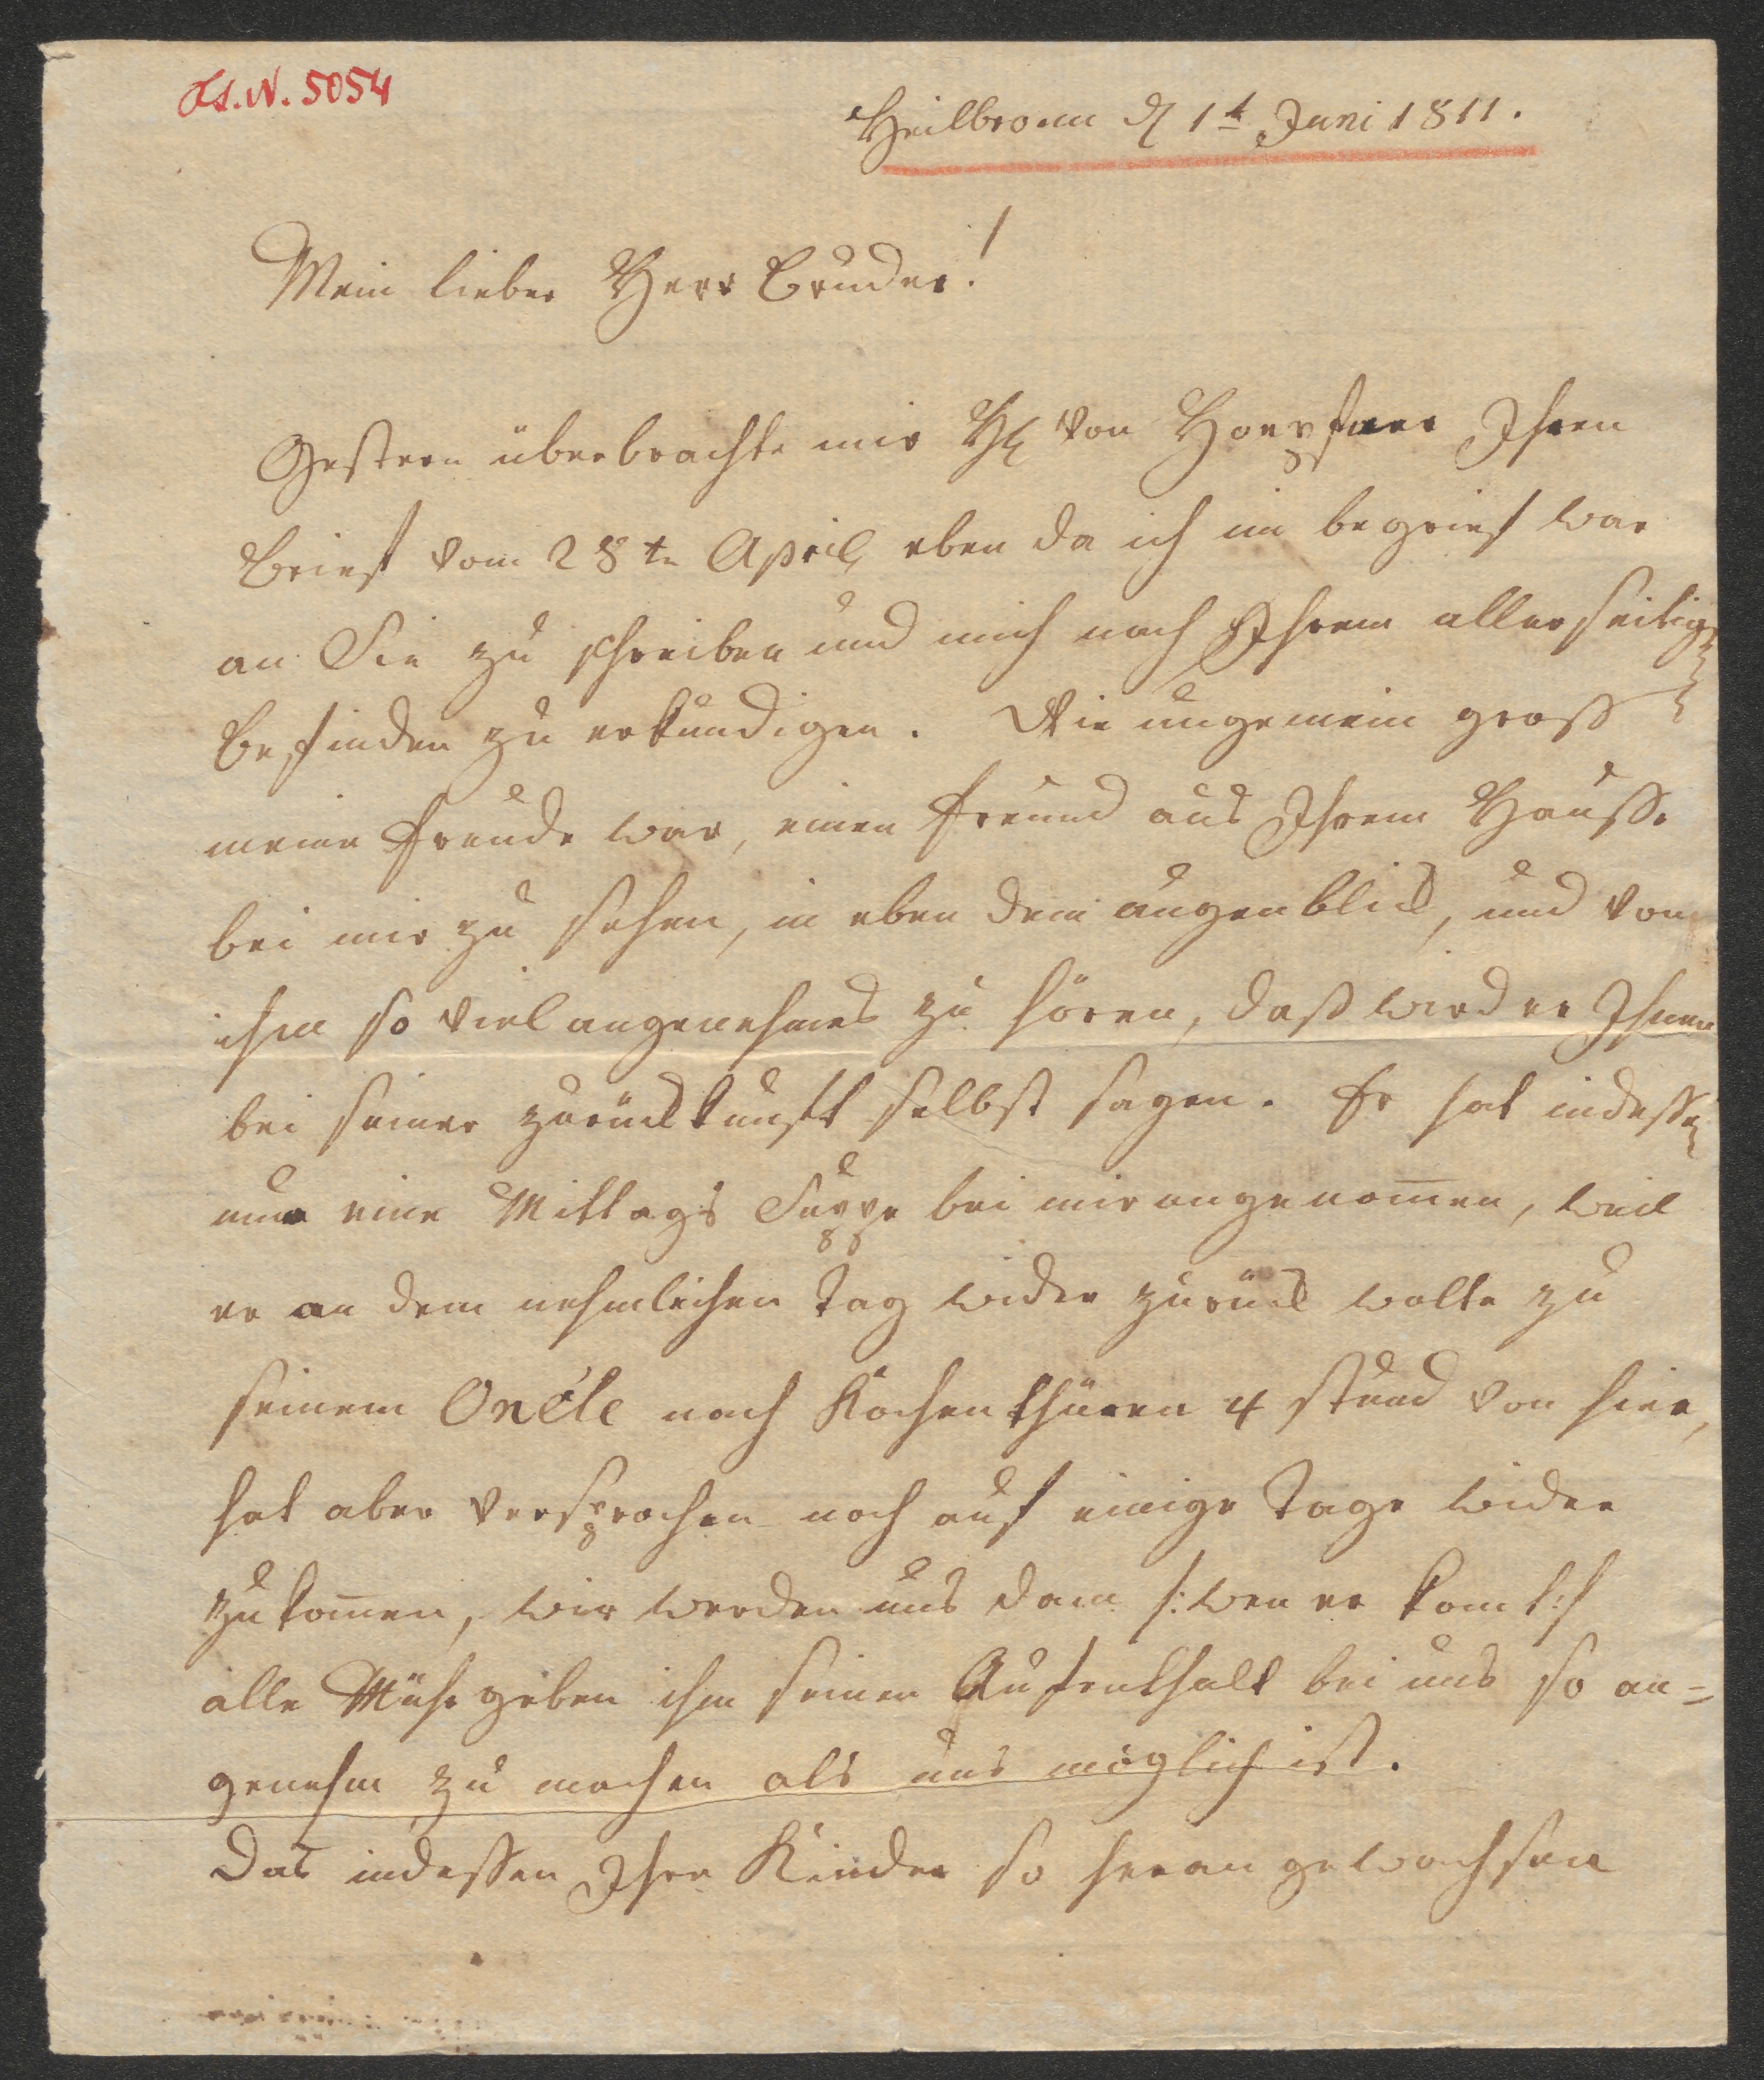 Hs. N. 5054
Heilbronn d 1t Juni 1811.
Mein lieber Herr Bruder!
Gestern überbrachte mir H von Hoepfner Ihren
Brief vom 28tn April, eben da ich im begrief war
an Sie zu schreiben und mich nach Ihrem allerseitigen
Befinden zu erkundigen. Wie ungemein gross
meine Freude war, einen Freund aus Ihrem Hausse
bei mir zu sehen, in eben dem augenblick, und von
ihm so viel angenehmes zu hören, dass wird er Ihnen
bei seiner zurückkunft selbst sagen. Er hat indessen
nur eine Mittags Suppe bei mir angenom̅en, weil
er an dem nehmlichen Tag wider zurück wolte zu
seinem Oncle nach Kochenthüren 4 stund von hier,
hat aber versprochen noch auf einige Tage wider
zu kom̅en, wir werden uns dann /: wen er komt :/
alle Mühe geben ihm seinen Aufenthalt bei uns so an=
genehm zu machen als uns möglich ist.
Das indessen Ihre Kinder so heran gewachsen